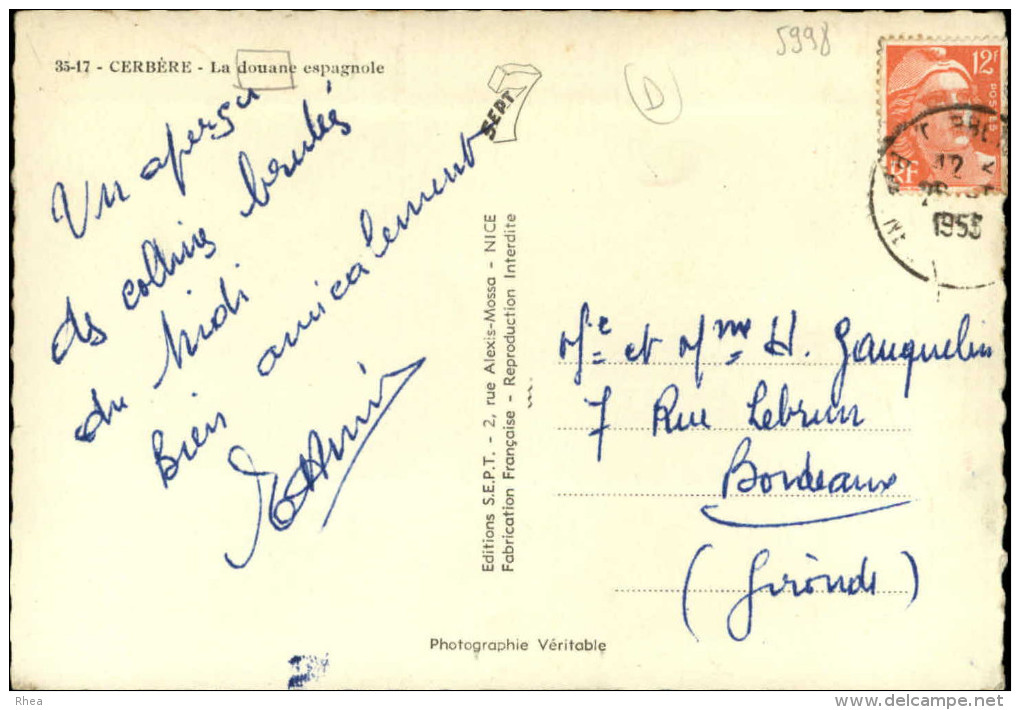 5998
35-17 - CERBÈRE - La douane espagnole
D
SEPT
12F
RF
12
1953
Un aperçu
des collines brulées
du Midi
Bien amicalement
Editions S.E.P.T. - 2, rue Alexis-Mossa - NICE
Fabrication Française - Reproduction Interdite
Me et Mme H. Gauquelin
7 Rue Lebrun
Bordeaux
(Gironde)
Photographie Véritable
Rhea
www.delcampe.net